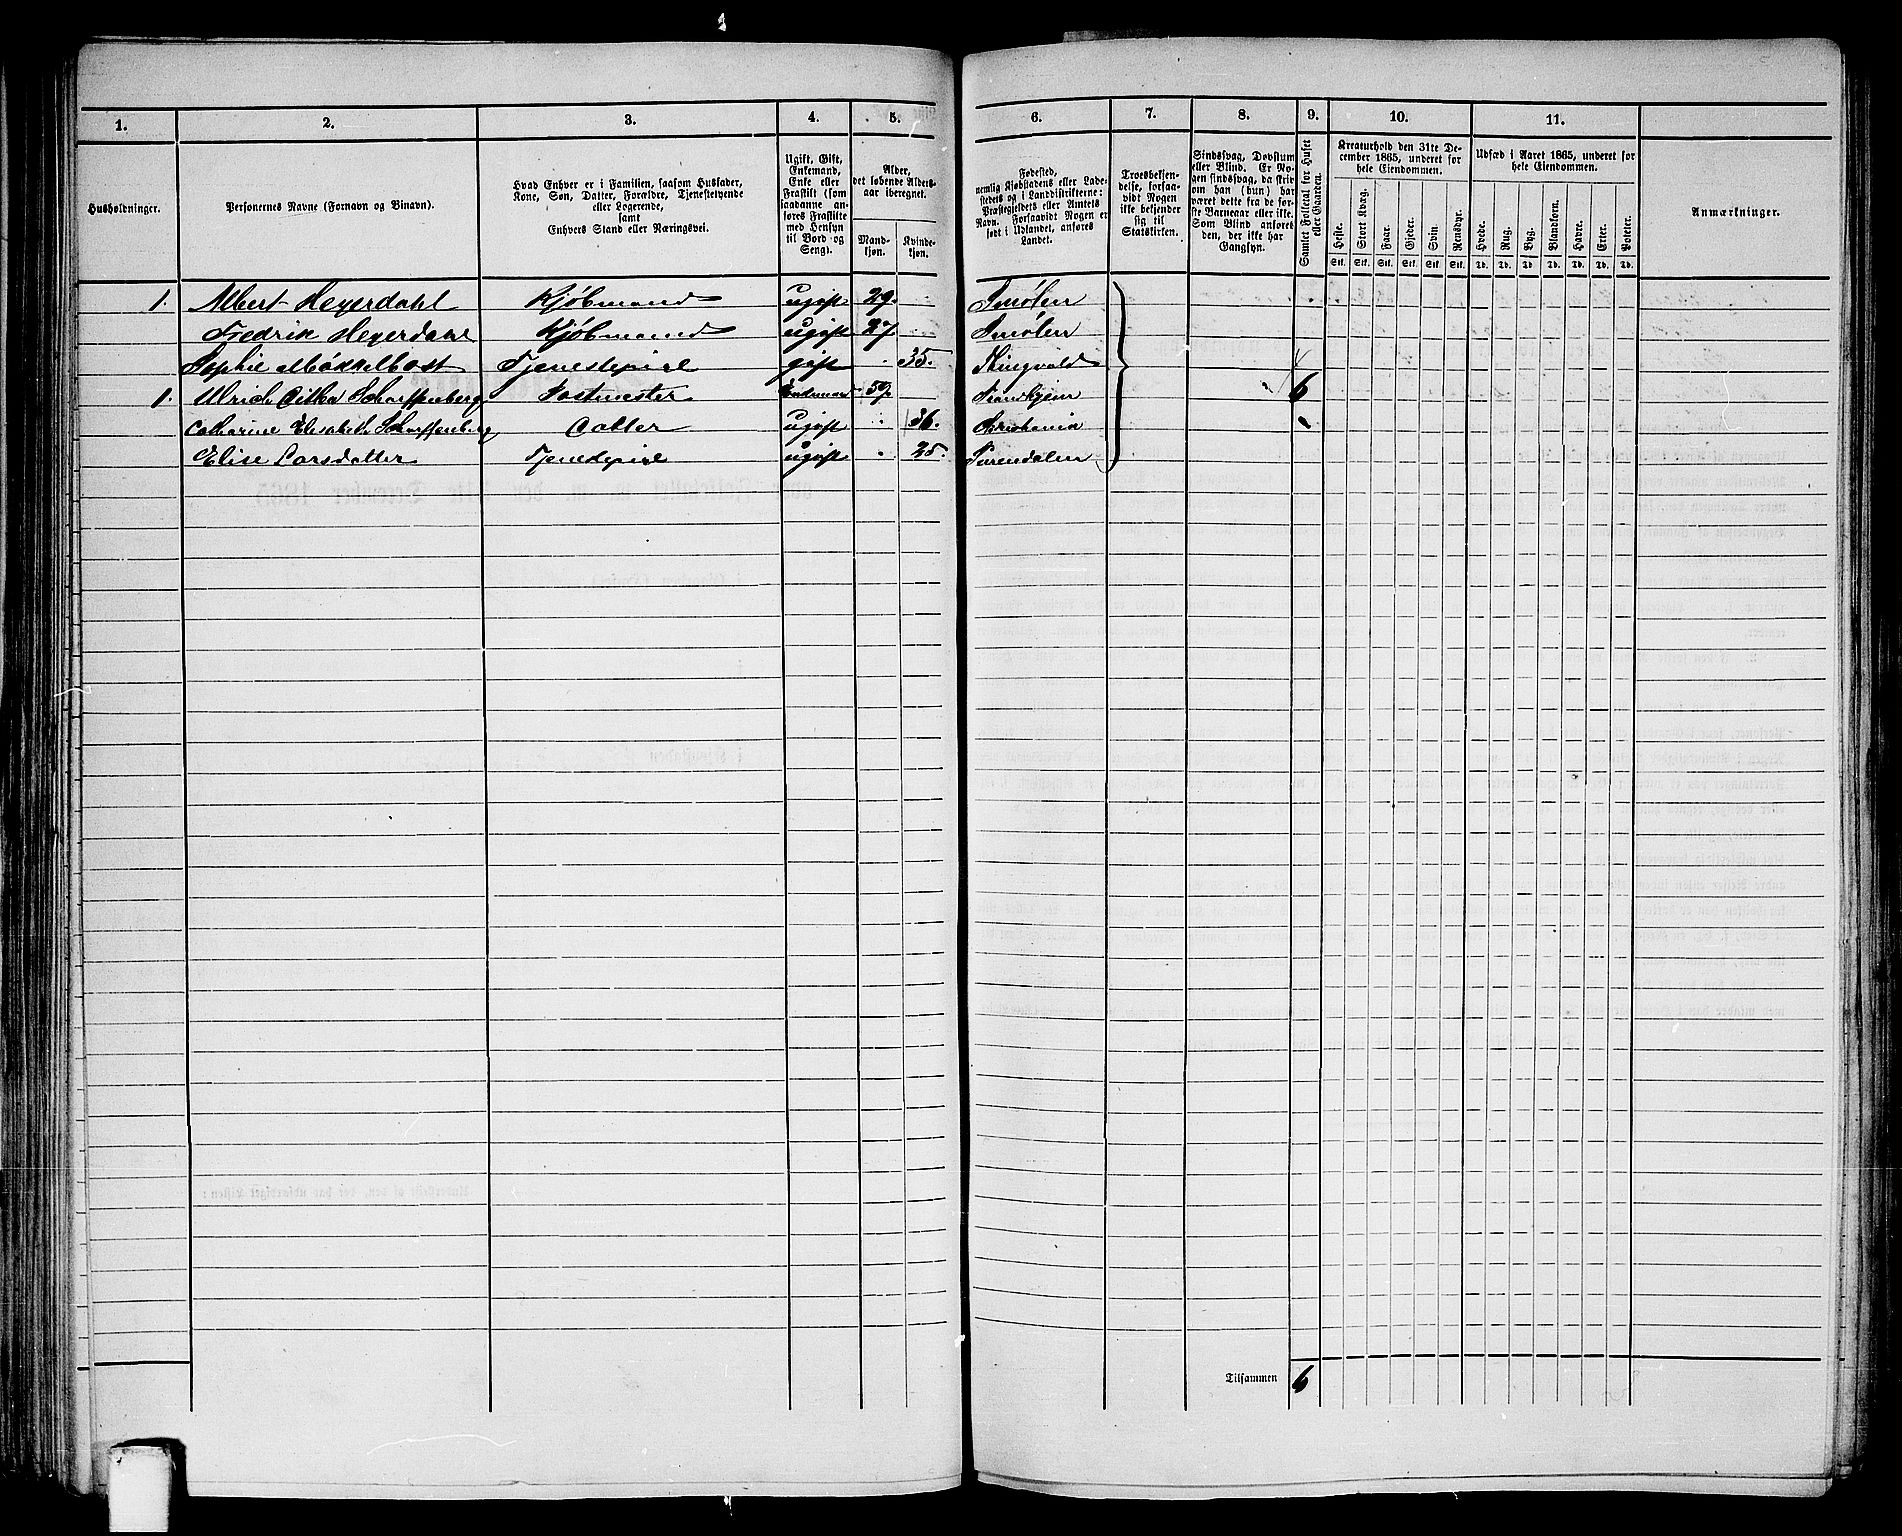 1. 2. 3. 4. 5. 6. 7. 8. 9. 10. 11.
Husholdninger.
Personernes Navne (Fornavn og Binavn).
Hvad Enhver er i Familien, saasom Husfader,
Kone, Søn, Datter, Forældre, Tjenestetyende
eller Logerende,
samt
Enhvers Stand eller Næringsvei.
Ugift, Gift,
Enkemand,
Enke eller
Fraskilt (som
saadanne an-
føres Fraskilte
med Hensyn
til Bord og
Seng).
Alder,
det løbende Alders-
aar iberegnet.
Mand-
kjøn.
Kvinde-
kjøn.
Fødested,
nemlig Kjøbstadens eller Lade-
stedets og i Landdistrikterne:
Præstegjeldets eller Amtets
Navn. Forsaavidt Nogen er
født i Udlandet, anføres
Landet.
Troesbekjen-
delse, forsaa-
vidt Nogen
ikke bekjender
sig til
Statskirken.
Sindssvag, Døvstum
eller Blind. Er No-
gen sindssvag, da skriv
om han (hun) har
været dette fra de før-
ste Barneaar eller ikke.
Som Blind anføres
den, der ikke har
Gangsyn.
Samlet Folketal for Huset
eller Gaarden.
Kreaturhold den 31te De-
cember 1865, underet for
hele Eiendommen.
Heste. Stort Kvæg. Faar. Gjeder. Svin. Rensdyr.
Stk. Stk. Stk. Stk. Stk. Stk.
Udsæd i Aaret 1865, underet for
hele Eiendommen.
Hvede. Rug. Byg. Blandkorn. Havre. Erter. Poteter.
Td. Td. Td. Td. Td. Td. Td.
Anmærkninger.
1. Albert Heyerdahl Kjøbmand ugift 29. Smølen
Fredrik Heyerdahl Kjøbmand ugift 27 Smølen
Sophie Tjenestepige gift 35. Thingvold
1. Ulrich Scharffenberg Postmester Enkemand 59. Trondhjem 6
Catharine Elisabeth Scharffenberg Datter ugift 36.
Elise Larsdatter Tjenestepige ugift 25. Surendalen
Tilsammen 6